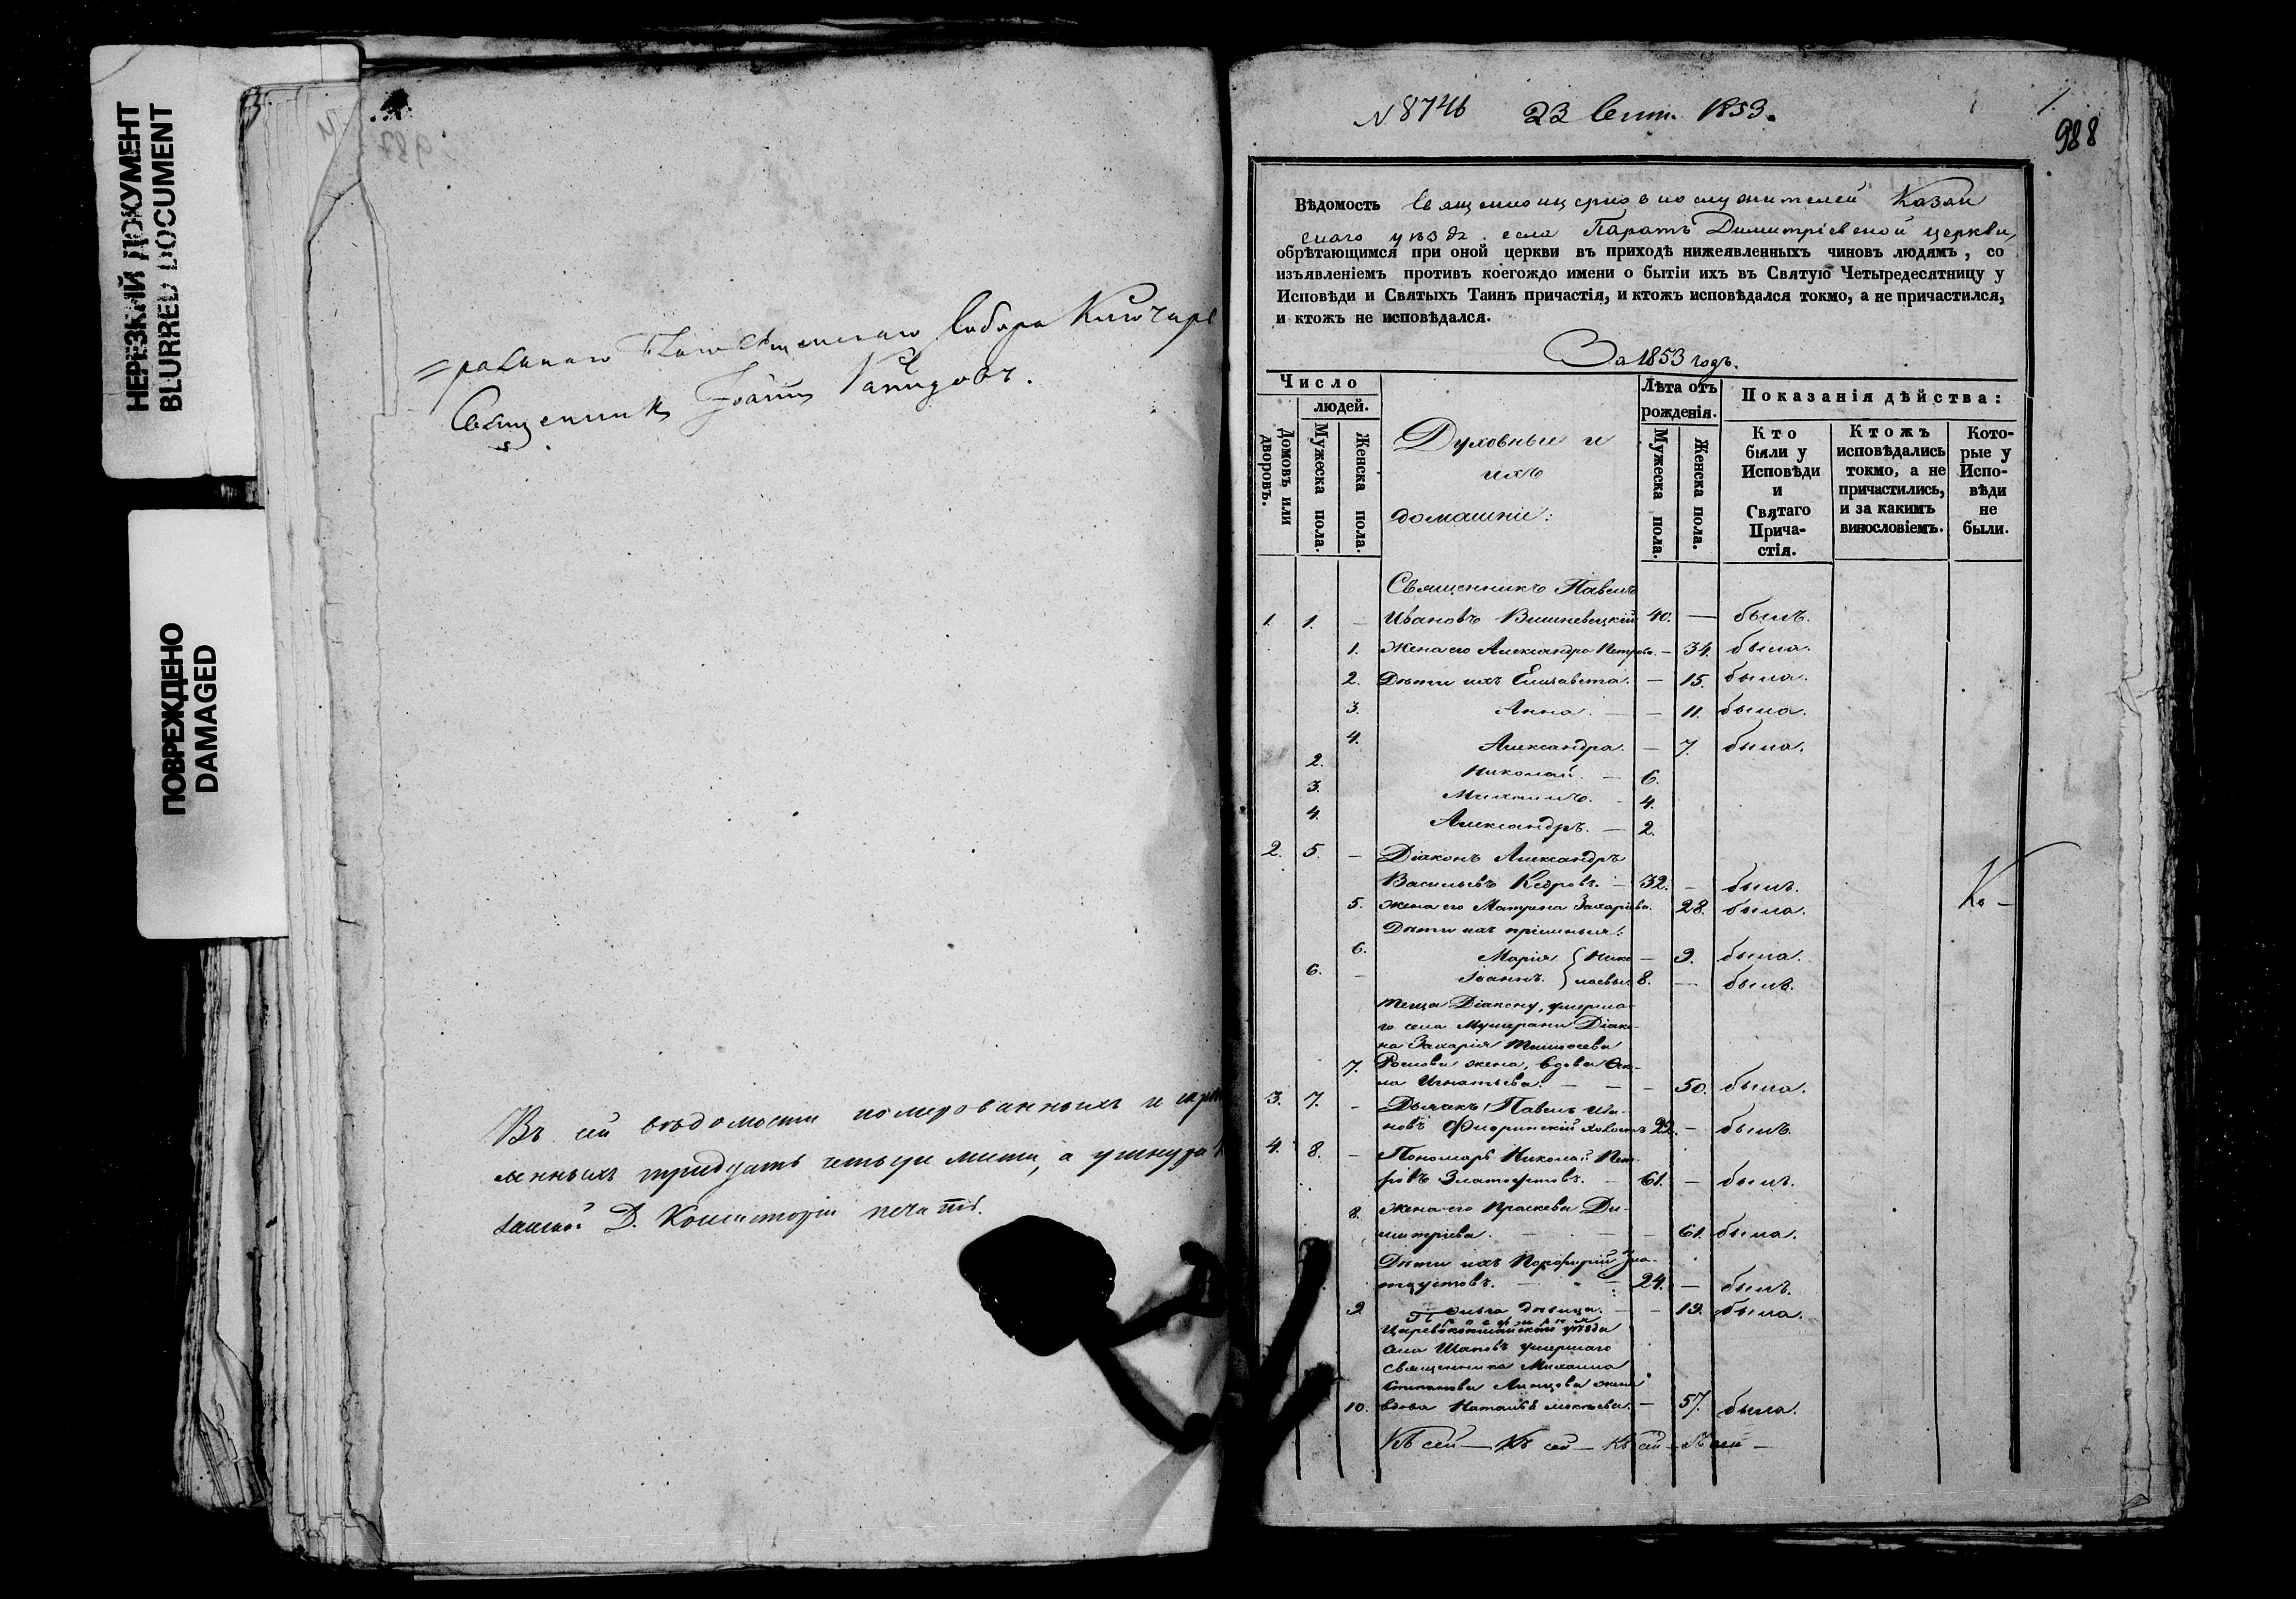 НЕРЕЗКИЙ ДОКУМЕНТ
BLURRED DOCUMENT
ПОВРЕЖДЕНО
DAMAGED
Собора Ключарь
Священникъ Іоаннъ
Въ сей вѣдомости номерованныхъ и скрѣп
ленныхъ тридцать четыре листа, а у шнура
Д. Консисторіи печать.
N 8746 23 Сент. 1853.
1.
988
Вѣдомость Священноцерковнослужителей Казан
скаго уѣзда села Паратъ Димитріевской церкви,
обрѣтающимся при оной церкви въ приходѣ нижеявленныхъ чиновъ людямъ, со
изъявленіемъ противъ коегождо имени о бытіи ихъ въ Святую Четыредесятницу у
Исповѣди и Святыхъ Таинъ причастія, и ктожъ исповѣдался токмо, а не причастился,
и ктожъ не исповѣдался.
За 1853 годъ.
Число
людей.
Домовъ или дворовъ.
Мужеска пола.
Женска пола.
Духовные и
ихъ
домашніе:
Лѣта отъ
рожденія.
Мужеска пола.
Женска пола.
Показанія дѣйства:
Кто
были у
Исповѣди
и
Святаго
Прича-
стія.
Ктожъ
исповѣдались
токмо, а не
причастились,
и за какимъ
винословіемъ.
Кото-
рые у
Испо-
вѣди
не
были.
Священникъ Павелъ
1. 1. — Ивановъ Вишневецкій 40. — былъ.
1. Жена его Александра Петрова. — 34. была.
2. Дѣти ихъ Елисавета. — 15. была.
3. Анна. — — 11. была.
4. Александра. — 7. была.
2. Николай. — 6.
3. Михаилъ. — 4.
4. Александръ. — 2.
2. 5. — Діаконъ Александръ
Васильевъ Кедровъ. — 32. — былъ.
5. Жена его Матрина Захарьева. 28. была.
Дѣти ихъ пріемныя:
6. Марія { Нико — 9. была.
6. — Іоаннъ { лаевы 8. — былъ.
теща Діакону, умерша-
го села Мушерани Діако-
на Захарія Тимофеева
7. жена, вдова
Игнатьева. — — — 50. была.
3. 7. — Дьячекъ Павелъ Ива-
новъ Флоринскій холостъ 22. — былъ.
4. 8. — Пономарь Николай Пет-
ровъ Златоустовъ. — 61. — былъ.
8. Жена его Праскева Ди-
митріева. — — — 61. была.
Дѣти ихъ Порфирій Зла-
тоустовъ. — — 24. — былъ.
9. Ольга дѣвица. — — 19. была.
Царевококшайскаго уѣзда
села Шаповъ умершаго
священника Михаила
Степанова жена
10. вдова Наталья — 57. была.
Къ сей — Къ сей — Къ сей — Къ сей —
Ка —